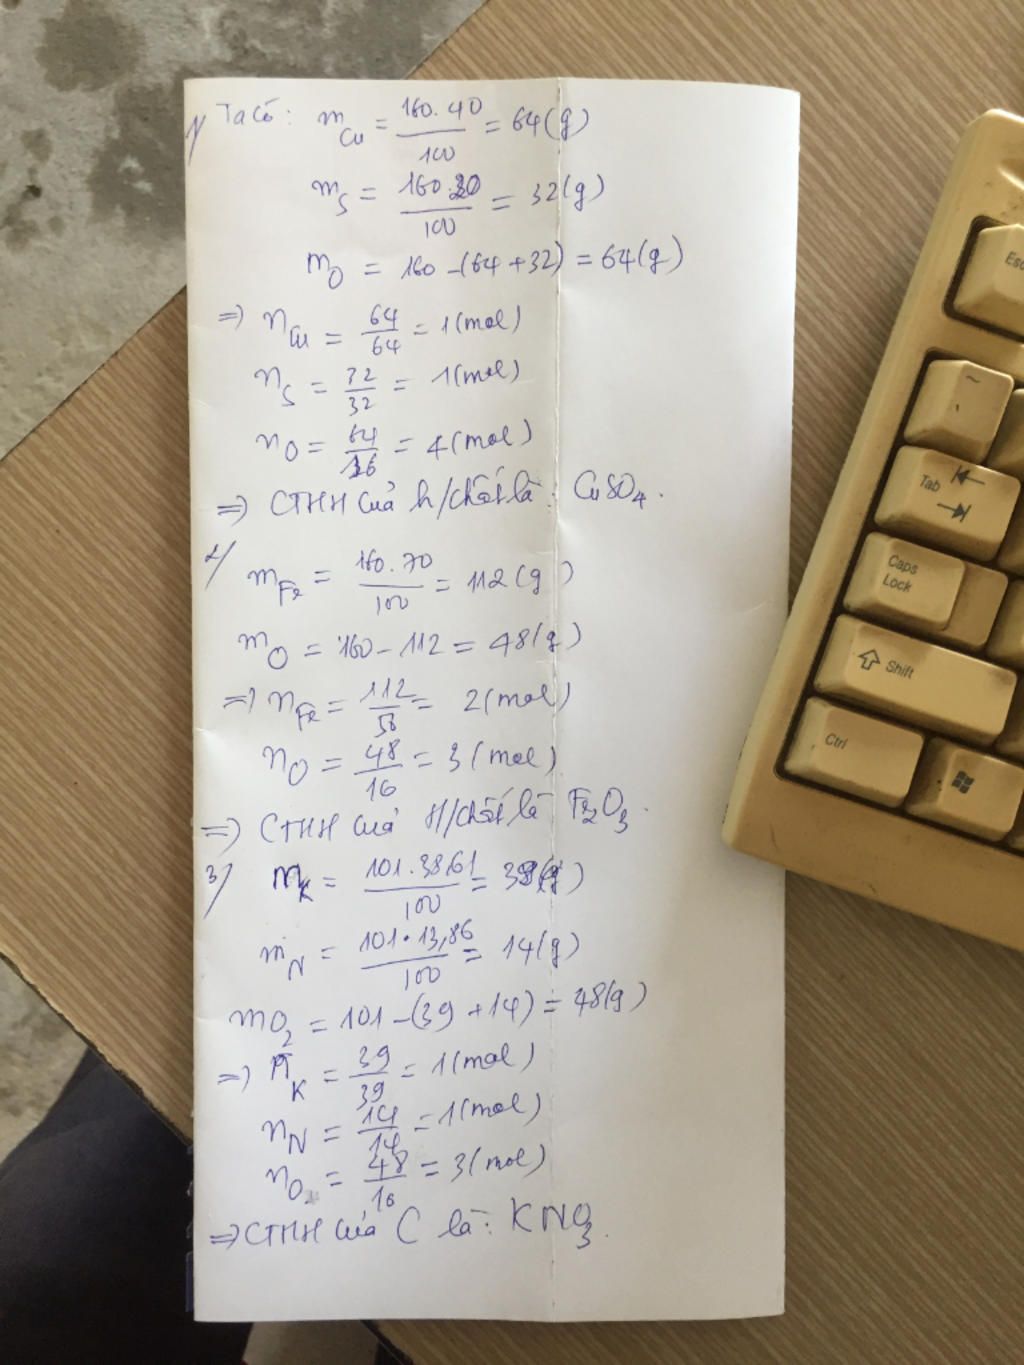 1/ Ta có: mCu = 160.40/100 = 64(g)
mS = 160.20/100 = 32(g)
mO = 160-(64+32) = 64(g)
=> nCu = 64/64 = 1(mol)
nS = 32/32 = 1(mol)
nO = 64/16 = 4(mol)
=> CTHH của h/chất là: CuSO4.
2/ mFe = 160.70/100 = 112(g)
mO = 160-112 = 48(g)
=> nFe = 112/56 = 2(mol)
nO = 48/16 = 3(mol)
=> CTHH của H/chất là Fe2O3.
3/ mK = 101.38,61/100 = 39(g)
mN = 101.13,86/100 = 14(g)
mO2 = 101-(39+14) = 48(g)
=> nK = 39/39 = 1(mol)
nN = 14/14 = 1(mol)
nO = 48/16 = 3(mol)
=> CTHH của C là: KNO3.
Esc
~
Tab
Caps Lock
Shift
Ctrl